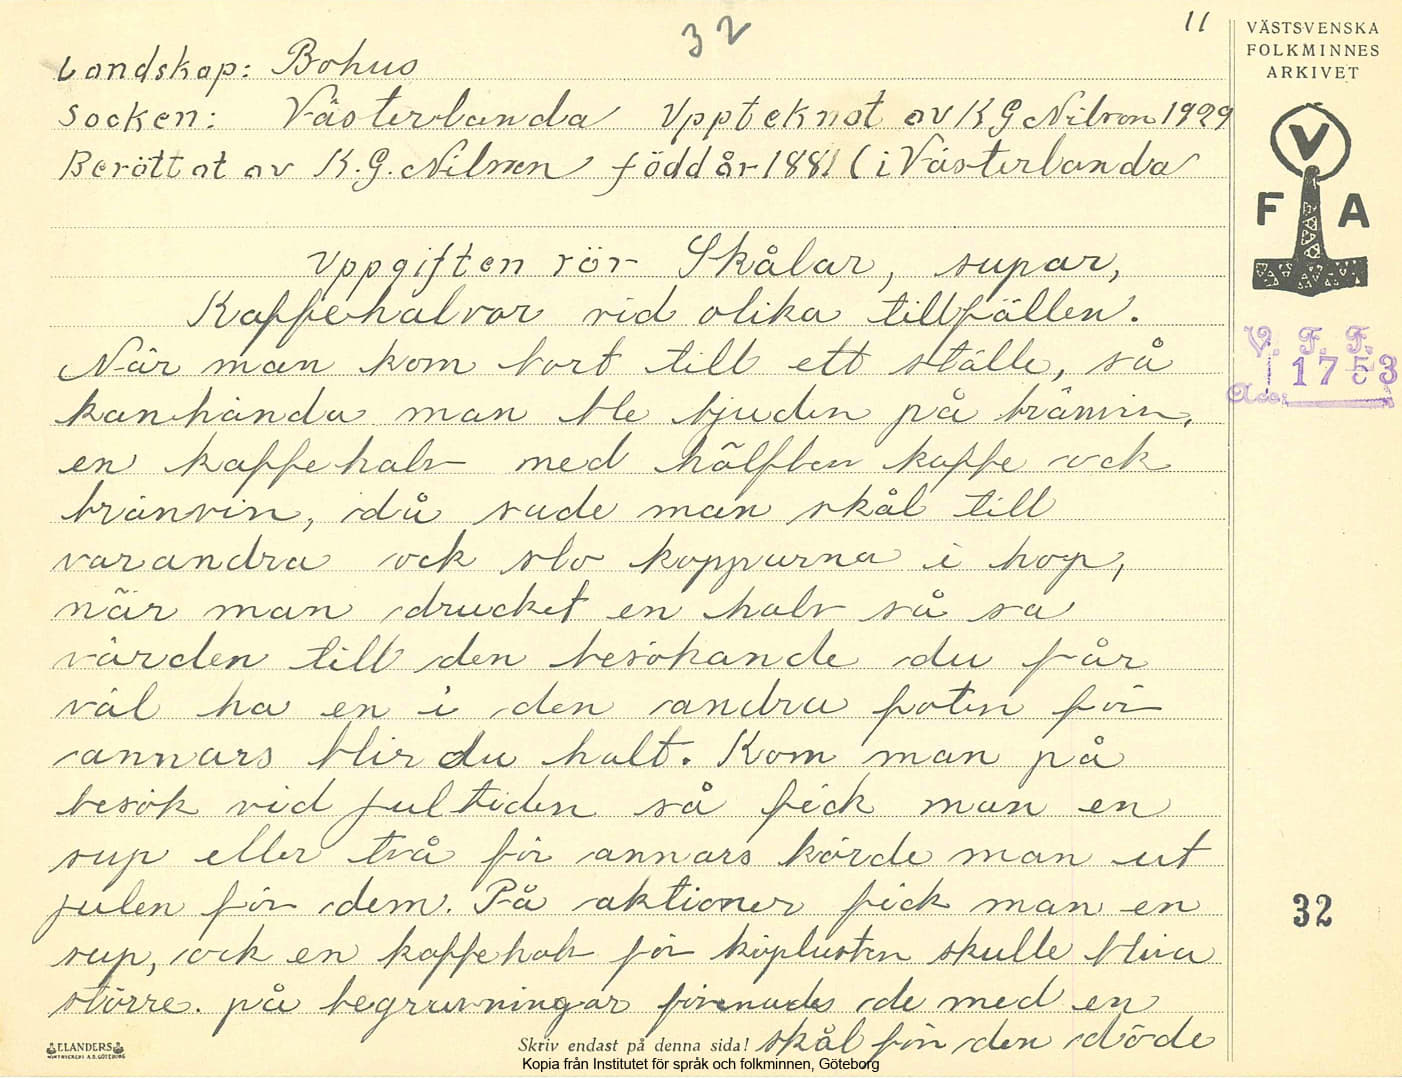 32
11
VÄSTSVENSKA
FOLKMINNES
ARKIVET
Landskap: Bohus
Socken: Västerlanda Upptecknat av K G Nilson 1929
Berättat av K. G. Nilsson född år 1881 (i Västerlanda
V
F A
Uppgiften rör Skålar, supar,
Kaffehalvor vid olika tillfällen.
V. F. F.
Acc. 1753
När man kom bort till ett ställe, så
kanhända man ble bjuden på bränvin,
en kaffehalv med hälften kaffe ock
bränvin, då sade man skål till
varandra ock slo kopparna i hop,
när man drucket en halv så sa
värden till den besökande du får
väl ha en i den andra foten för
annars blir du halt. Kom man på
besök vid jultiden så fick man en
sup eller två för annars körde man ut
julen för dem. På aktioner fick man en
32
sup, ock en kaffehalv för köplusten skulle bliva
större. på begravningar förenades de med en
skål för den döde
ELANDERS
BOKTRYCKERI A.B. GÖTEBORG
Skriv endast på denna sida!
Kopia från Institutet för språk och folkminnen, Göteborg